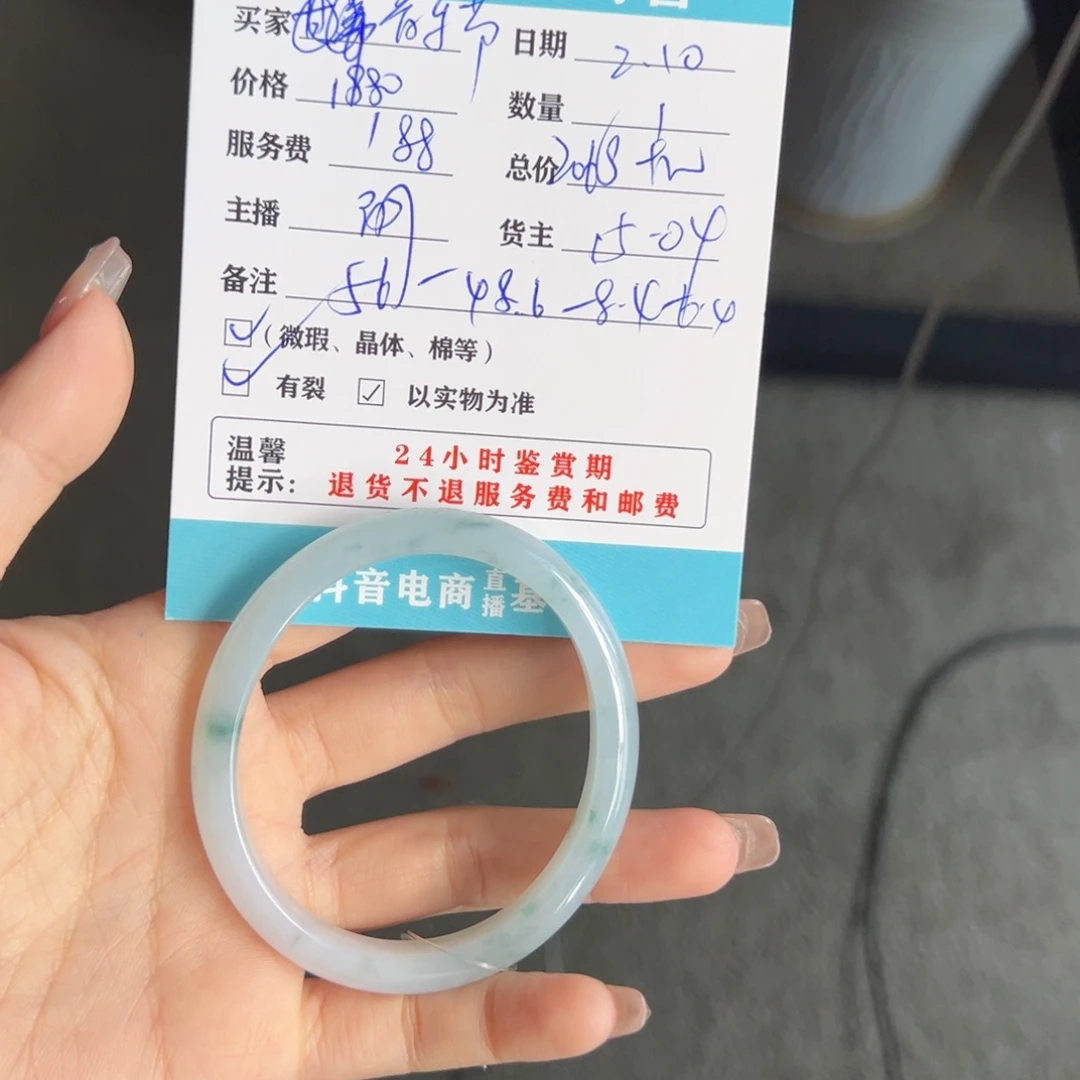 买家 音乐节 日期 2.10
价格 1880 数量 1
服务费 188 总价 2068
主播 货主 15-04
备注 56-48.6-8.4-6.4
(微瑕、晶体、棉等)
有裂 以实物为准
温馨提示: 24小时鉴赏期
退货不退服务费和邮费
抖音电商直播基